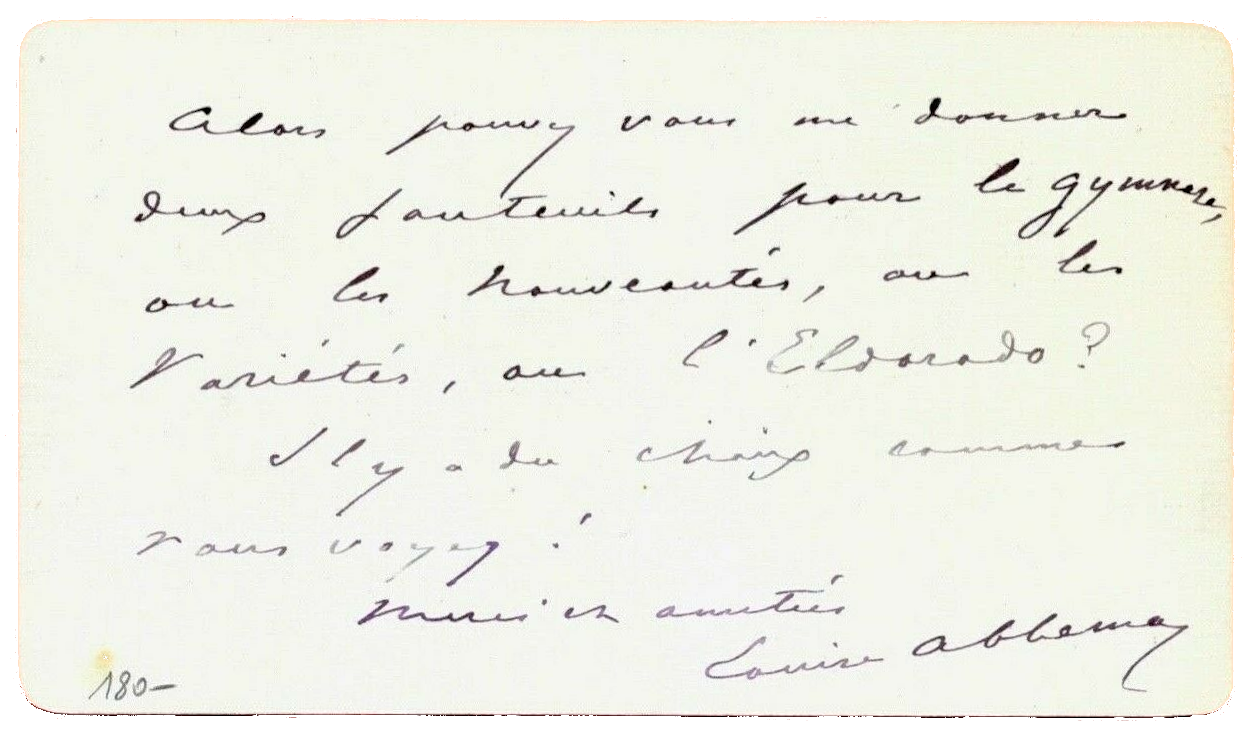 Alors pouvez vous me donner
deux fauteuils pour le gymnase,
ou les Nouveautés, ou les
Variétés, ou l'Eldorado?
Il y a du choix comme
vous voyez!
Merci et amitiés
Louise Abbema
180-